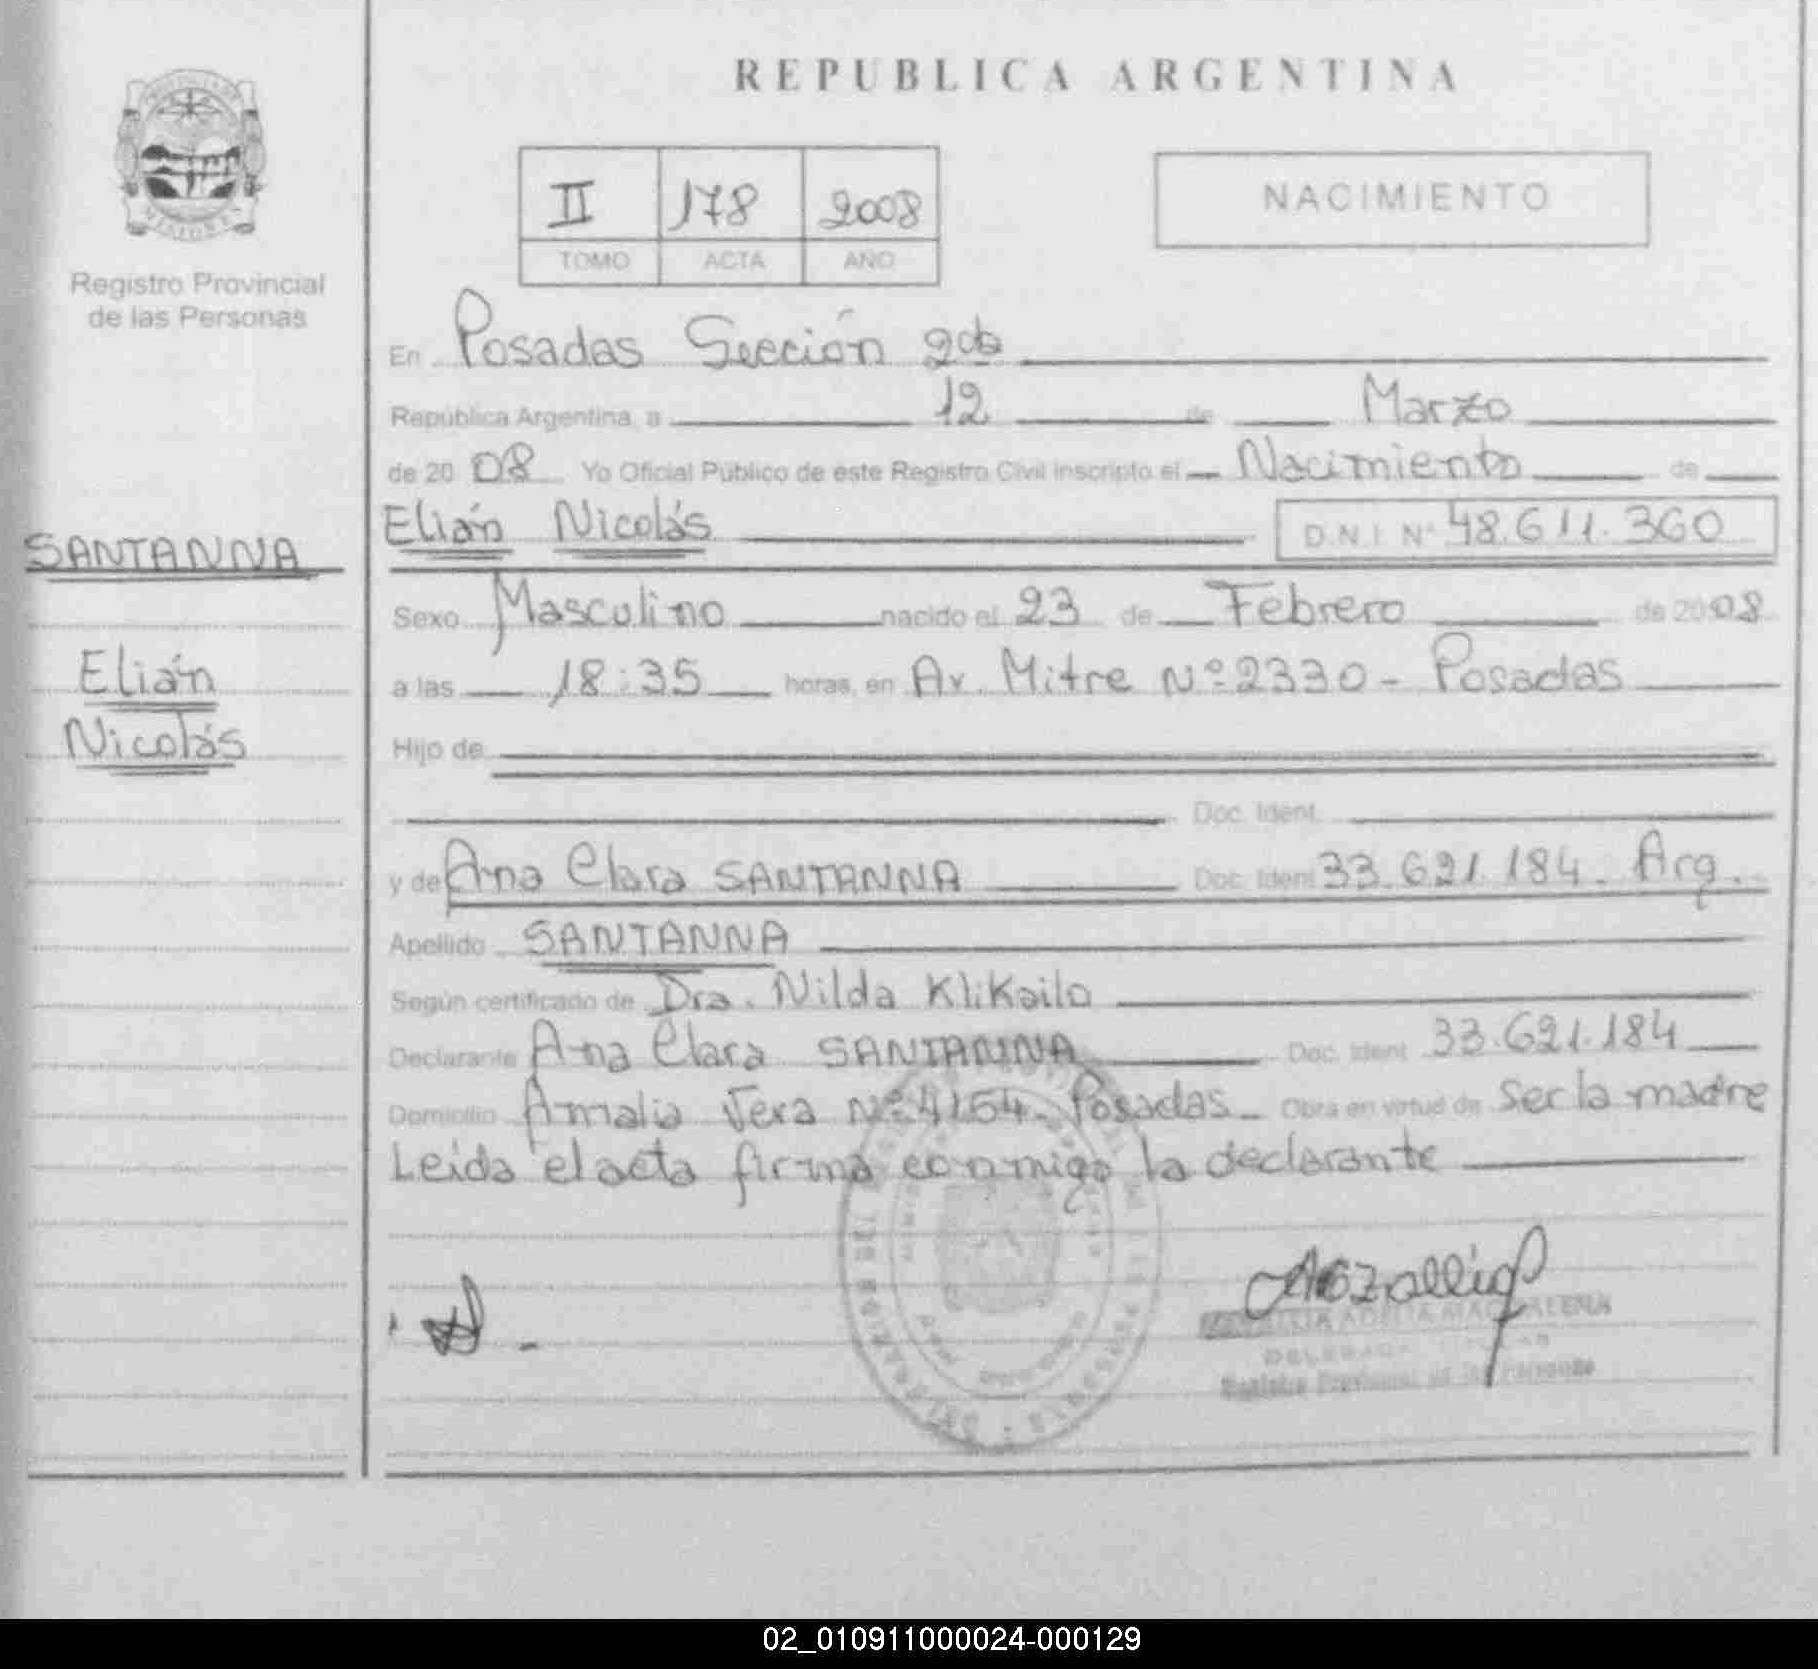 REPUBLICA ARGENTINA
II 178 2008
TOMO ACTA AÑO
NACIMIENTO
MISIONES
Registro Provincial
de las Personas
En Posadas Sección 2da
República Argentina, a 12 de Marzo
de 2008 Yo Oficial Público de este Registro Civil inscripto el Nacimiento de
SANTANNA
Elián Nicolás D.N.I. Nº 48.611.360
Sexo Masculino nacido el 23 de Febrero de 2008
Elián
Nicolás
a las 18:35 horas, en Av. Mitre Nº 2330 - Posadas
Hijo de
Doc. Ident.
y de Ana Clara SANTANNA Doc. Ident 33.621.184. Arg.
Apellido SANTANNA
Según certificado de Dra. Nilda Klikailo
Declarante Ana Clara SANTANNA Doc. Ident 33.621.184
Domicilio Amalia Vera Nº 4154. Posadas. Obra en virtud de Ser la madre
Leída el acta firma conmigo la declarante
Registro Provincial de las Personas
02_010911000024-000129